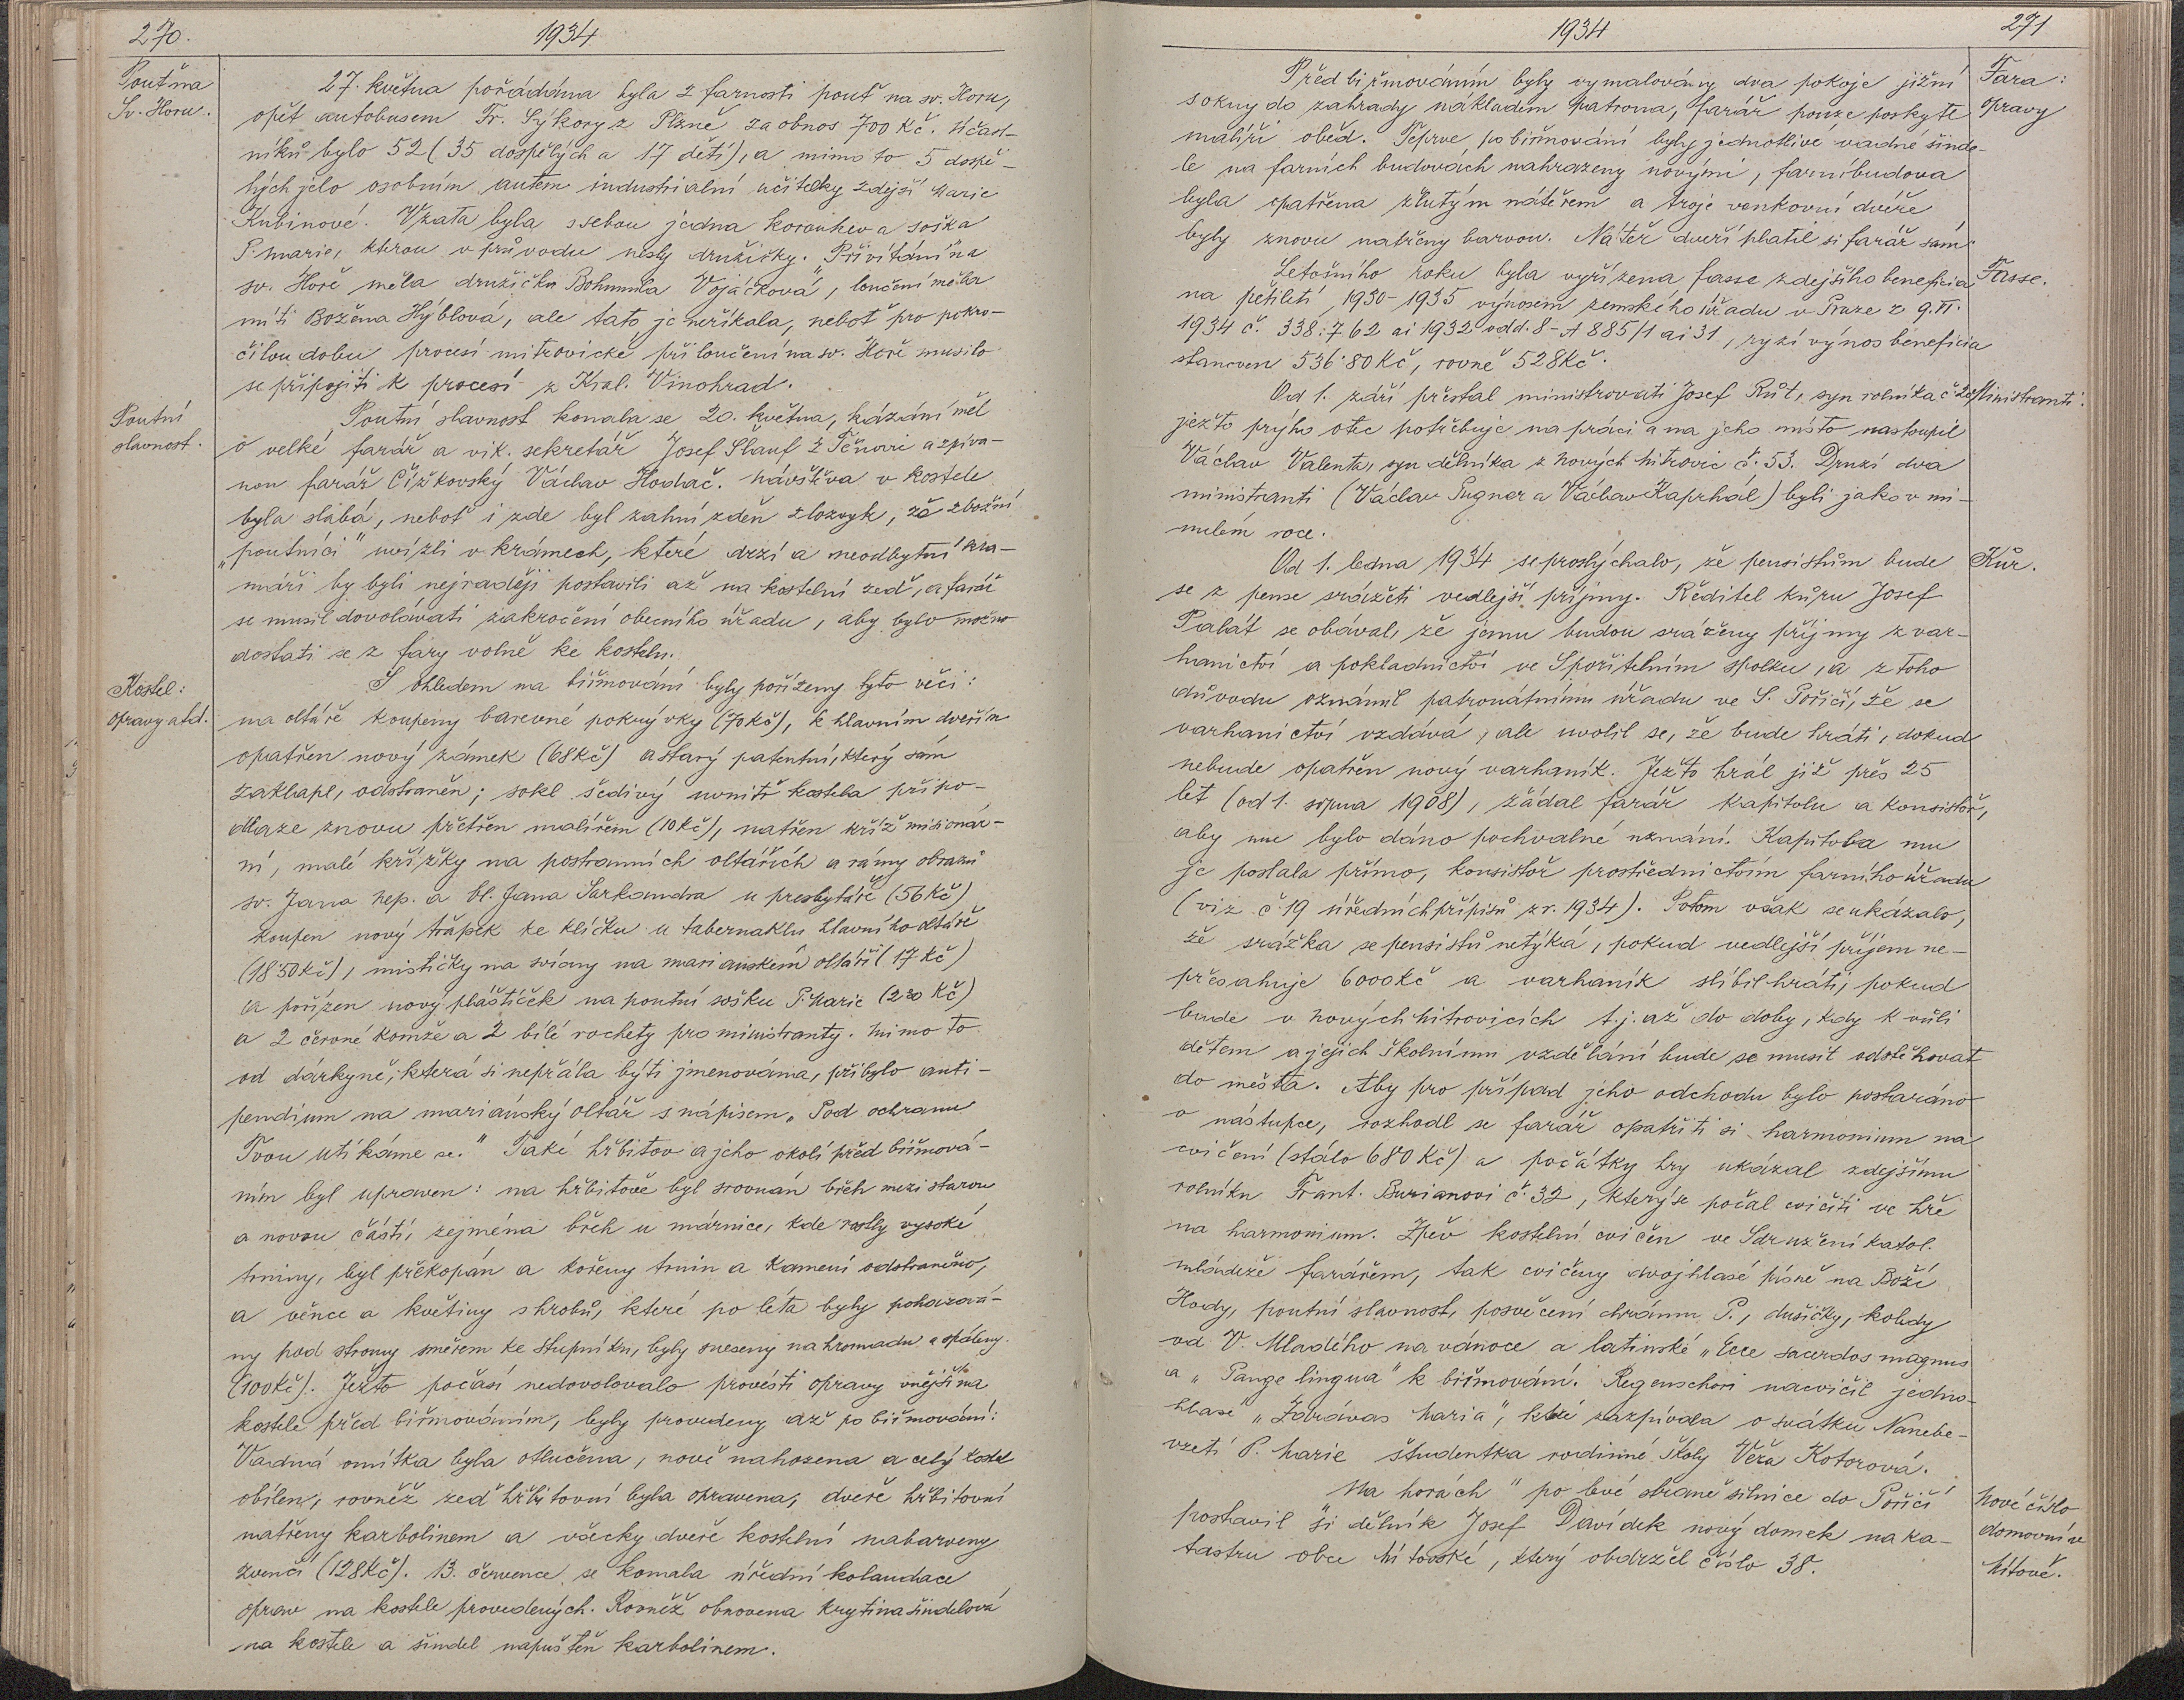 270.
1934
Pouť na
Sv. Horu.
27. května pořádána byla z farnosti pouť na sv. Horu,
opět autobusem Fr. Sýkory z Plzně za obnos 700 Kč. Účast-
níků bylo 52 (35 dospělých a 17 dětí), a mimo to 5 dospě-
lých jelo osobním autem industrialní učitelky zdejší Marie
Kubinové. Vzata byla s sebou jedna korouhev a soška
P. Marie, kterou v průvodu nesly družičky. Přivítání na
sv. Hoře měla družička Bohumila Vojáčková, loučení měla
míti Božena Hýblová, ale tato je neříkala, neboť pro pokro-
čilou dobu procesí mitrovické při loučení na sv. Hoře musilo
se připojiti k procesí z Král. Vinohrad.
Poutní
slavnost.
Poutní slavnost konala se 20. května, kázání měl
o velké farář a vik. sekretář Josef Slauf z Těnovic a zpíva-
nou farář Čížkovský Václav Hodač. Návštěva v kostele
byla slabá, neboť i zde byl zahnízděn zlozvyk, že zbožní
„poutníci" uvízli v krámech, které drzí a neodbytní kra-
máři by byli nejraději postavili až na kostelní zeď, a farář
se musil dovolávati zakročení obecního úřadu, aby bylo možno
dostati se z fary volně ke kostelu.
Kostel:
opravy atd.
S ohledem na biřmování byly pořízeny tyto věci:
na oltáře koupeny barevné pokrývky (70 Kč), k hlavním dveřím
opatřen nový zámek (68 Kč) a starý patentní, který sám
zaklapl, odstraněn; sokl šedivý uvnitř kostela při po-
dlaze znovu přetřen malířem (10 Kč), natřen kříž misionár-
ní, malé křížky na postranních oltářích a rámy obrazů
sv. Jana Nep. a bl. Jana Sarkandra u presbytáře (56 Kč)
koupen nový třápek ke klíčku u tabernaklu hlavního oltáře
(18˙50 Kč), mističky na svícny na marianském oltáři (17 Kč)
a pořízen nový pláštíček na poutní sošku P. Marie (230 Kč)
a 2 červné komže a 2 bílé rochety pro ministranty. Mimo to
od dárkyně, která si nepřála býti jmenována, přibylo anti-
pendium na mariánský oltář s nápisem „Pod ochranu
Tvou utíkáme se." Také hřbitov a jeho okolí před biřmová-
ním byl upraven: na hřbitově byl srovnán břeh mezi starou
a novou částí, zejména břeh u márnice, kde rostly vysoké
trniny, byl překopán a kořeny trnin a kamení odstraněno,
a věnce a květiny s hrobů, které po léta byly pohazová-
ny pod stromy směrem ke Stupníku, byly sneseny na hromadu a spáleny.
(100 Kč). Ježto počasí nedovolovalo provésti opravy vnější na
kostele před biřmováním, byly provedeny až po biřmování:
Vadná omítka byla otlučena, nově nahozena a celý kostel
obílen, rovněž zeď hřbitovní byla opravena, dveře hřbitovní
natřeny karbolinem a všecky dveře kostelní nabarveny
zvenčí (128 Kč). 13. července se konala úřední kolaudace
oprav na kostele provedených. Rovněž obnovena krytina šindelová
na kostele a šindel napuštěn karbolinem.
1934
271
Fara:
opravy
Před biřmováním byly vymalovány dva pokoje jižní
s okny do zahrady nákladem patrona, farář pouze poskytl
malíři oběd. Teprve po biřmování byly jednotlivé vadné šinde-
le na farních budovách nahrazeny novými, farní budova
byla opatřena žlutým nátěrem a troje venkovní dvéře
byly znovu natřeny barvou. Nátěr dveří platil si farář sám.
Fasse.
Letošního roku byla vyřízena fasse zdejšího beneficia
na pětiletí 1930-1935 výnosem zemského úřadu v Praze z 9. VI.
1934 č. 338.762 ai 1932 odd. 8-A 885/1 ai 31, ryzí výnos beneficia
stanoven 536˙80 Kč, rovně 528 Kč.
Ministranti.
Od 1. září přestal ministrovati Josef Růt, syn rolníka č
ježto prý ho otec potřebuje na práci a na jeho místo nastoupil
Václav Valenta, syn dělníka z Nových Mitrovic č. 53. Druzí dva
ministranti (Václav Pugner a Václav Kaprhál) byli jako v mi-
nulém roce.
Kůr.
Od 1. ledna 1934 se proslýchalo, že pensistům bude
se z pense srážeti vedlejší příjmy. Ředitel kůru Josef
Palát se obával, že jemu budou sráženy příjmy z var-
hanictví a pokladnictví ve Spořitelním spolku, a z toho
důvodu oznámil patronátnímu úřadu ve S. Poříčí, že se
varhanictví vzdává, ale uvolil se, že bude hráti, dokud
nebude opatřen nový varhaník. Ježto hrál již přes 25
let (od 1. srpna 1908), žádal farář kapitolu a konsistoř,
aby mu bylo dáno pochvalné uznání. Kapitola mu
je poslala přímo, konsistoř prostřednictvím farního úřadu
(viz č. 19 úředních přípisů z r. 1934). Potom však se ukázalo,
že srážka se pensistů netýká, pokud vedlejší příjem ne-
přesahuje 6000 Kč a varhaník slíbil hráti, pokud
bude v Nových Mitrovicích t. j. až do doby, kdy k vůli
dětem a jejich školnímu vzdělání bude se musit odstěhovat
do města. Aby pro případ jeho odchodu bylo postaráno
o nástupce, rozhodl se farář opatřiti si harmonium na
cvičení (stálo 680 Kč) a počátky hry ukázal zdejšímu
rolníku Frant. Burianovi č. 32, který se počal cvičiti ve hře
na harmonium. Zpěv kostelní cvičen ve Sdružení katol.
mládeže farářem, tak cvičeny dvojhlasé písně na Boží
Hody, poutní slavnost, posvěcení chrámu P., dušičky, koledy
od V. Mladého na vánoce a latinské „Ecce sacerdos magnus
a „Pange lingua" k biřmování. Regenschori nacvičil jedno-
hlasé „Zdrávas Maria", které zazpívala o svátku Nanebe-
vzetí P. Marie študentka rodinné školy Věra Kotorová.
Nové číslo
domovní v
Mítově.
„Na horách" po levé straně silnice do Poříčí
postavil si dělník Josef Davídek nový domek na ka-
tastru obce Mítovské, který obdržel číslo 38.